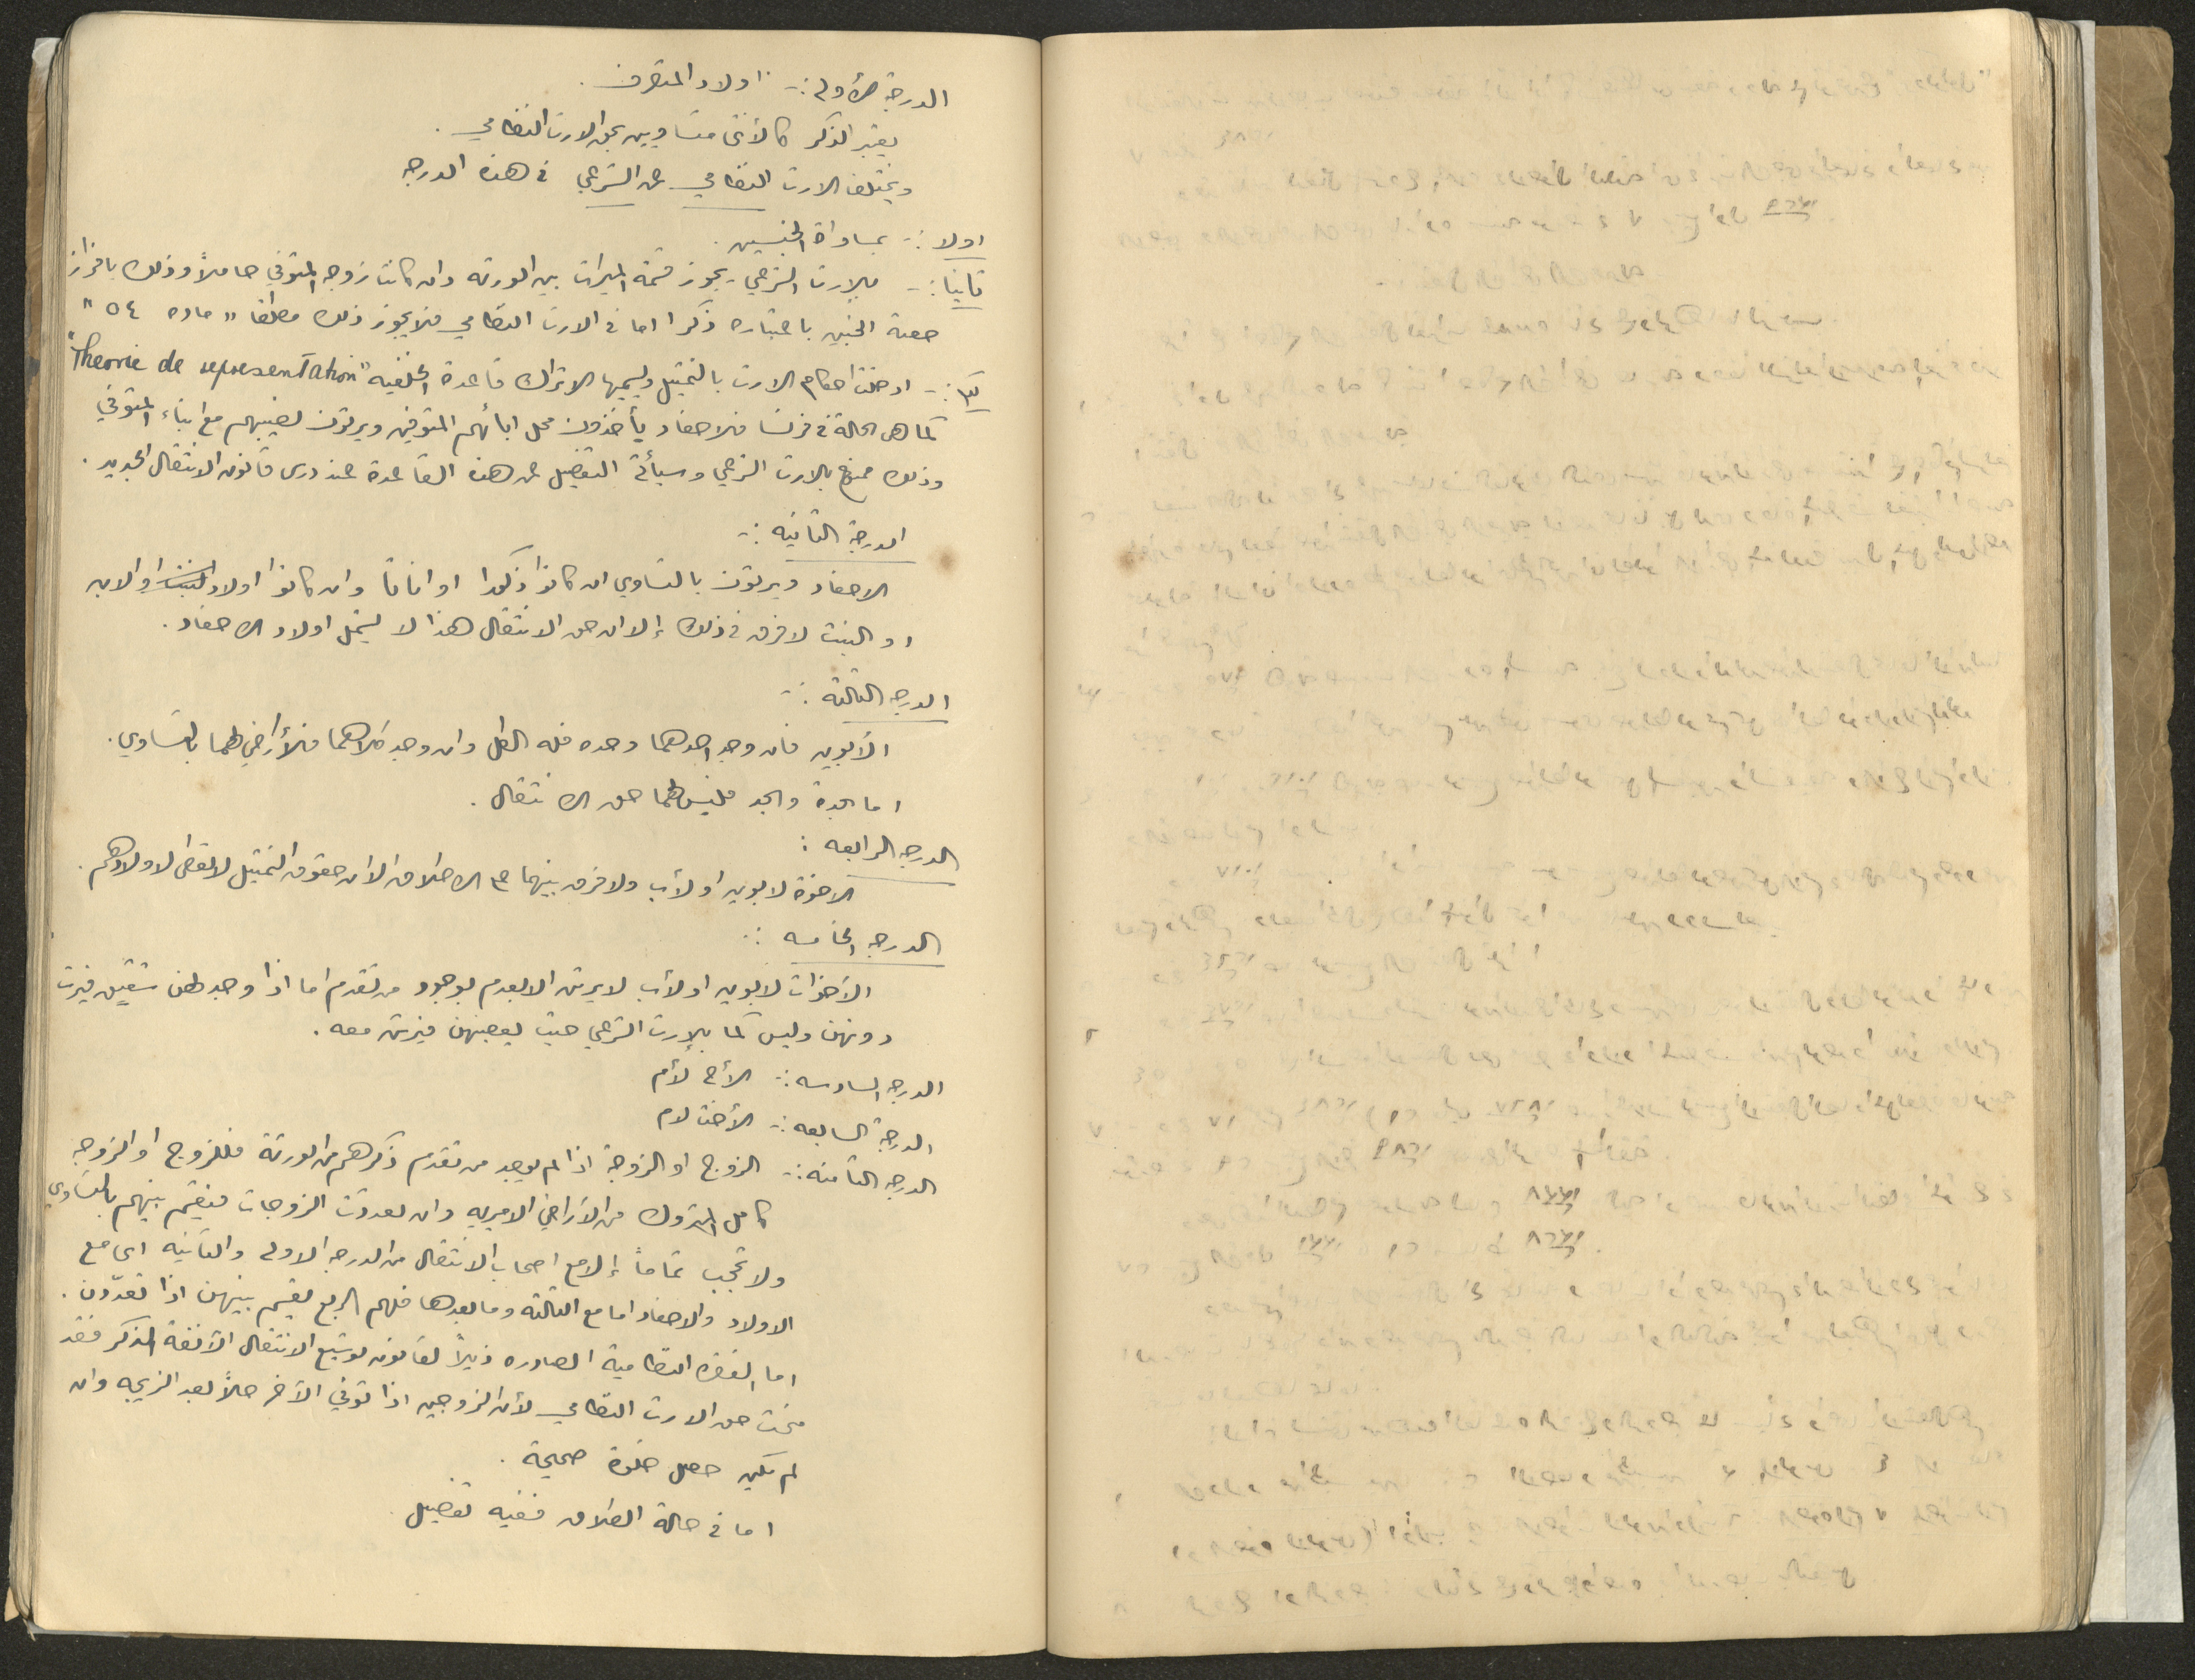 الدرجة الأولى :- اولاد المتصرف .
يعتبر الذكر كالأنثى متساويين بحق الارث النظامي .
ويختلف الارث النظامي عن الشرعي في هذه الدرجه
اولا :- بمساواة الجنسين .
ثانيا :- بالارث الشرعي يجوز قسمة الميراث بين الورثه وان كانت زوجه المتوفي حاملاً وذلك بافراز
حصة الجنين باعتباره ذكرا اما في الارث النظامي فلا يجوز ذلك مطلقا " ماده ٥٤ "
ادخلت احكام الارث بالتمثيل ويسميها الاتراك قاعدة الخلفيه "Theorie de representation"
كما هي الحالة في فرنسا فالاحفاد يأخذون محل ابائهم المتوفين ويرثون نصيبهم مع ابناء المتوفي
وذلك ممنوع بالارث الشرعي وسيأتي التفصيل عن هذه القاعدة عند درس قانون الانتقال الجديد .
الدرجة الثانيه :-
الاحفاد ويرثون بالتساوي ان كانوا ذكورا او اناثا وان كانوا اولاد الابن
او البنت لا فرق في ذلك إلا ان حق الانتقال هذا لا يشمل اولاد الاحفاد .
الدرجه الثالثه :-
الأبوين فان وجد احدهما وحده فله الكل وان وجد كلاهما فالأراضي لهما بالتساوي .
اما الجدة والجد فليس لهما حق الانتقال .
الدرجه الرابعه :
الاخوة لابوين او لأب ولا فرق بينهما على الاطلاق الا ان حقوق التمثيل لا تعطى لاولادهم .
الدرجه الخامسه :-
الأخوات لأبوين او لأب لا يرثن الا بعدم وجود من تقدم اما اذا وجد لهن شقيق فيرث
دونهن وليس كما بالإرث الشرعي حيث يعصبهن فيرثن معه .
الدرجه السادسه :- الأخ لأم
الدرجة السابعه :- الأخت لام
الدرجه الثامنه :- الزوج او الزوجة اذا لم يوجد من تقدم ذكرهم من الورثة فللزوج او الزوجه
كامل المتروك من الأراضي الاميريه وان تعددت الزوجات فيقسم بينهم بالتساوي
ولا تحجب تماماً إلا مع اصحاب الانتقال من الدرجه الاولى والثانيه اي مع
الاولاد والاحفاد اما مع الثالثه وما بعدها فلهم الربع يقسم بينهن اذا تعدّدن .
اما الفقره النظامية الصادره ذيلاً لقانون توسيع الانتقال الآنفة الذكر فقد
منحت حق الارث النظامي لأن الزوجين اذا توفي الآخر حالاً بعد الزيجه وان
لم يكن حصل خلوة صحيحة .
اما في حالة الطلاق ففيه تفصيل .